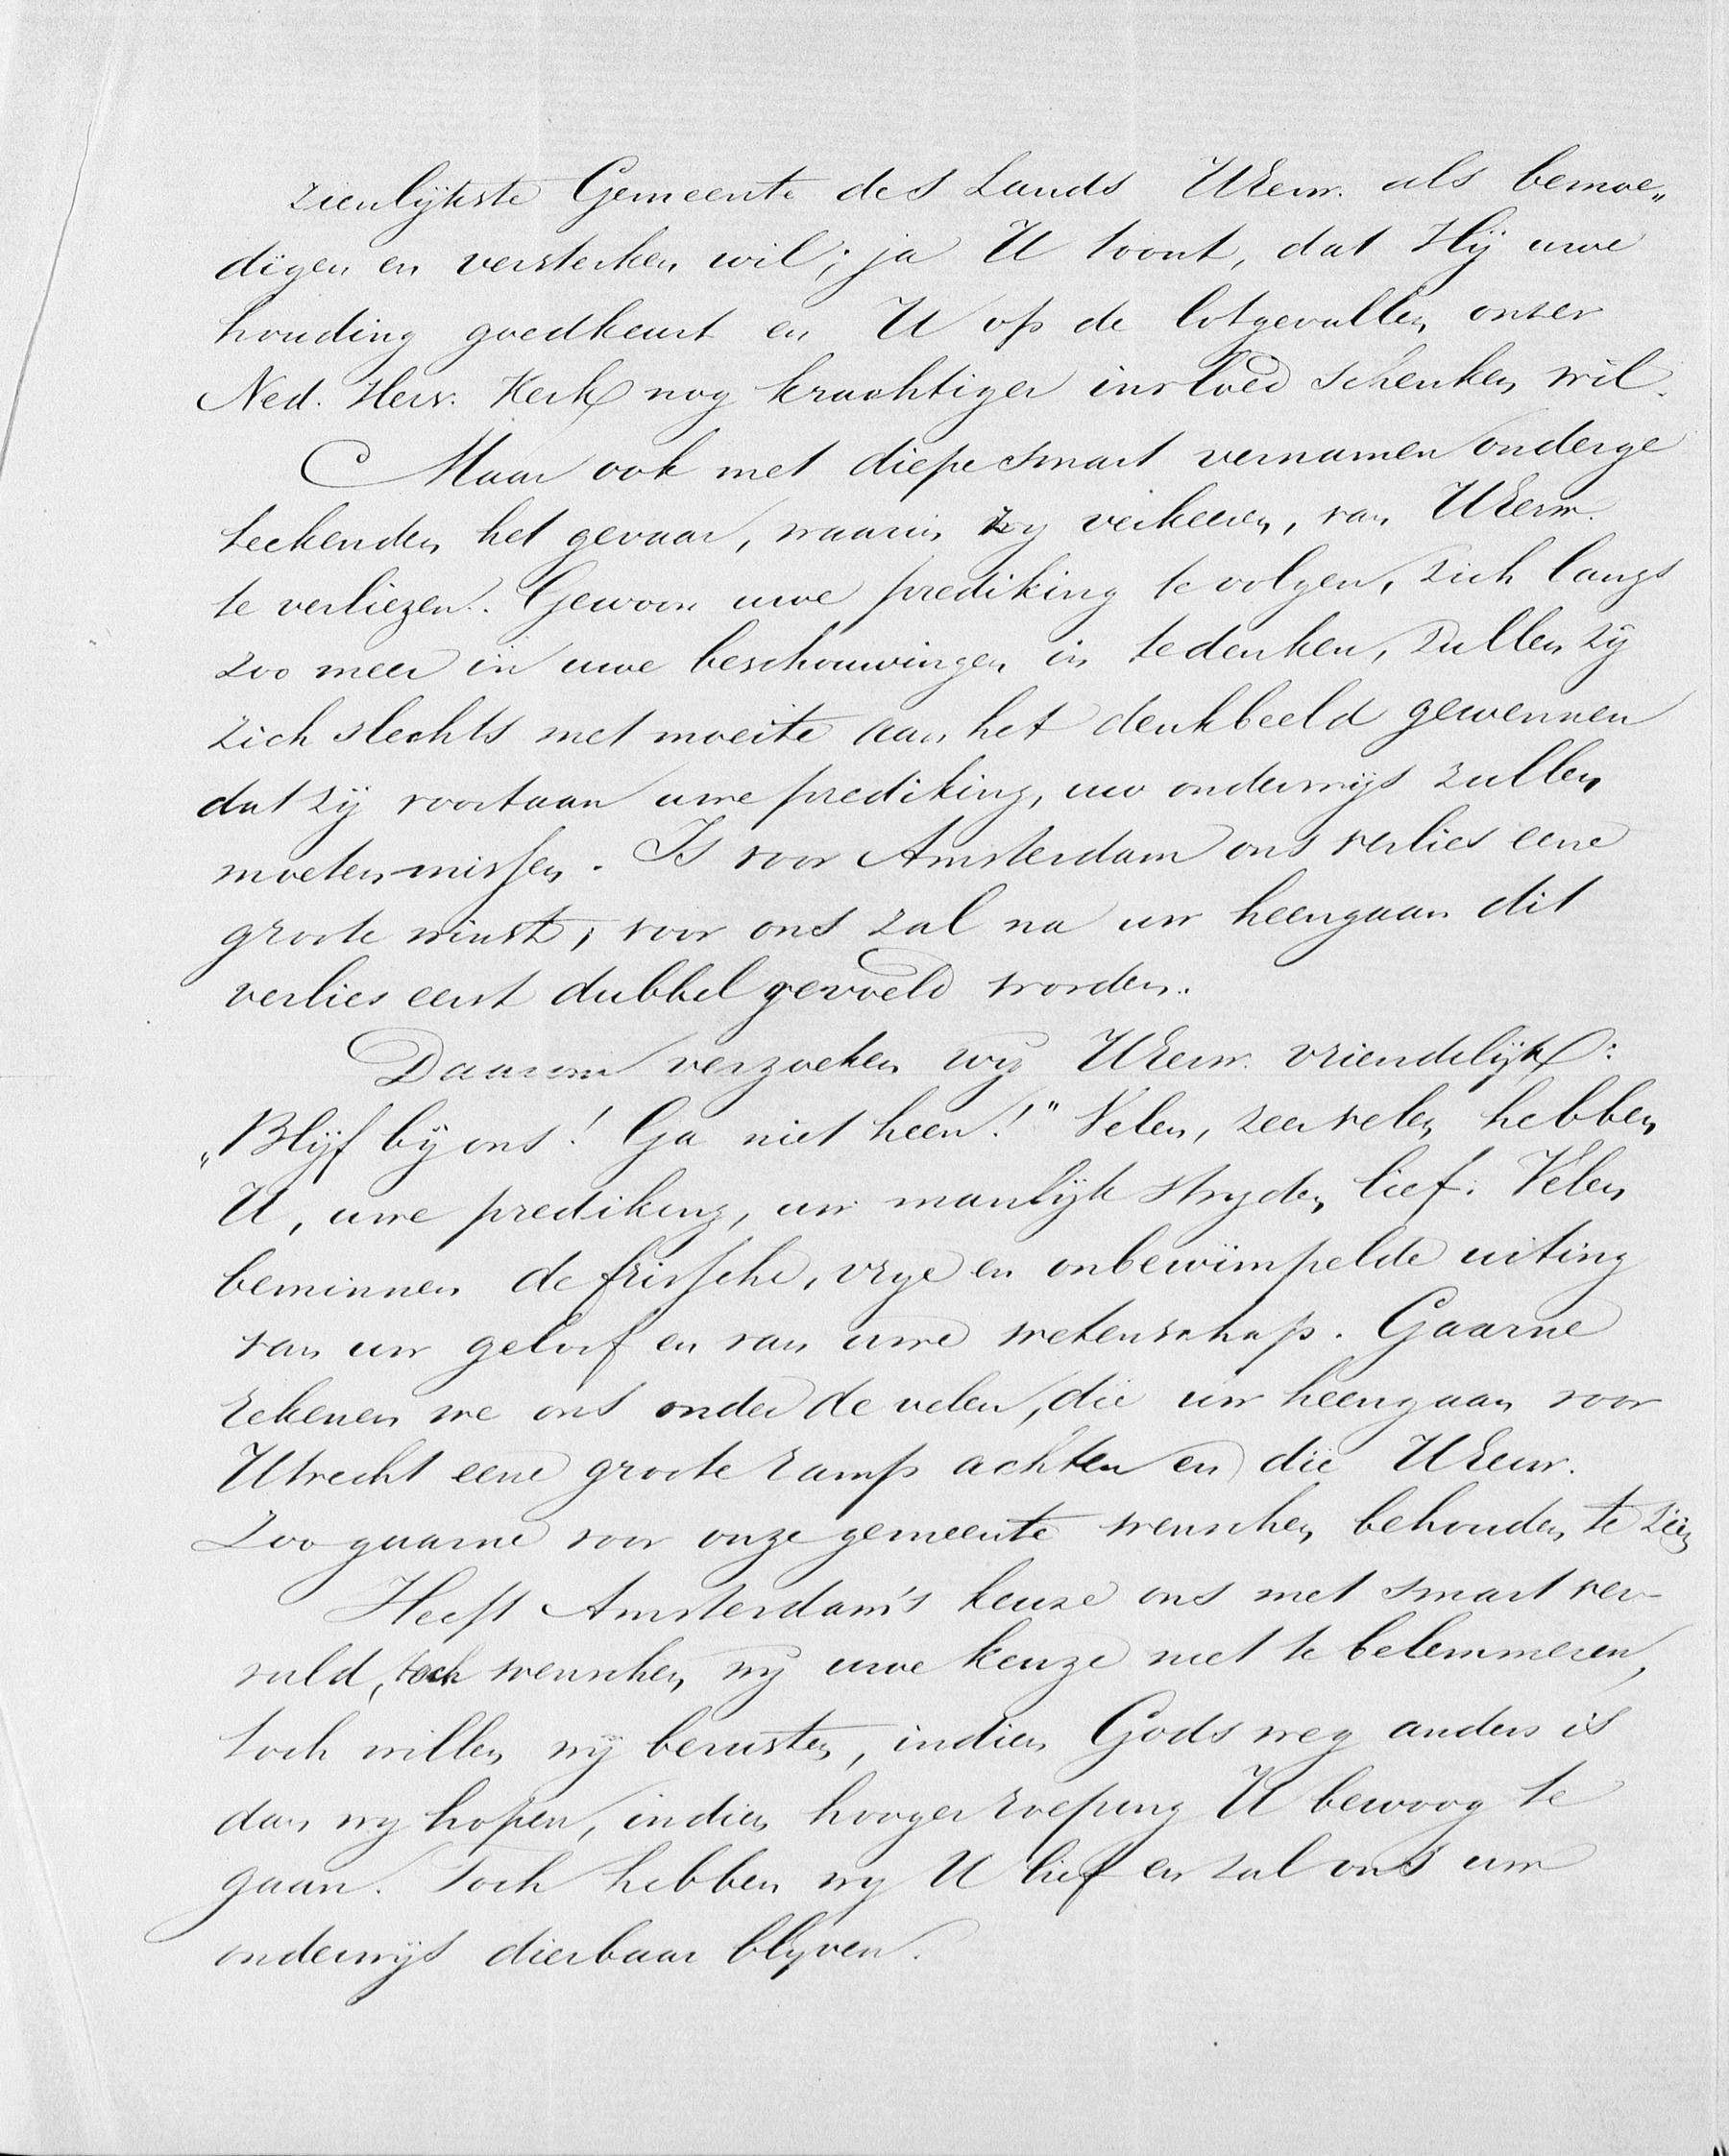 zienlijkste Gemeente des Lands UEerw. als bemoe„
digen en versterken wil; ja U toont, dat Hij uwe
houding goedkeurt en U op de lotgevallen onzer
Ned. Herv. Kerk nog krachtiger invloed schenken wil.
Maar ook met diepe smart vernamen onderge
teekenden het gevaar, waarin zy verkeeren, van UEerw.
te verliezen. Gewoon uwe prediking te volgen, zich langs
zoo meer in uwe beschouwingen in tedenken, zullen zij
zich slechts met moeite aan het denkbeeld gewennen
dat zij voortaan uwe prediking, uw onderwijs zullen
moeten missen. Is voor Amsterdam ons verlies eene
groote winst, voor ons zal na uw heengaan dit
verlies eerst dubbel gevoeld worden.
Daarom verzoeken wij UEerw. vriendelijk:
„Blijf bij ons! Ga niet heen!" Velen, zeer velen hebben
U, uwe prediking, uw manlijk stryden lief. Velen
beminnen de frissche, vrye en onbewimpelde uiting
van uw geloof en van uwe wetenschap. Gaarne
rekenen we ons onder de velen, die uw heengaan voor
Utrecht eene groote ramp achten en die UEerw.
zoo gaarne voor onze gemeente wenschen behouden te zien
Heeft Amsterdam's keuze ons met smart ver-
vuld, toch wenschen wij uwe keuze niet te belemmeren,
toch willen wij berusten, indien Gods weg anders is
dan wy hopen, indien hooger roeping U bewoog te
gaan. Toch hebben wy U lief en zal ons uw
onderwijs dierbaar blyven.